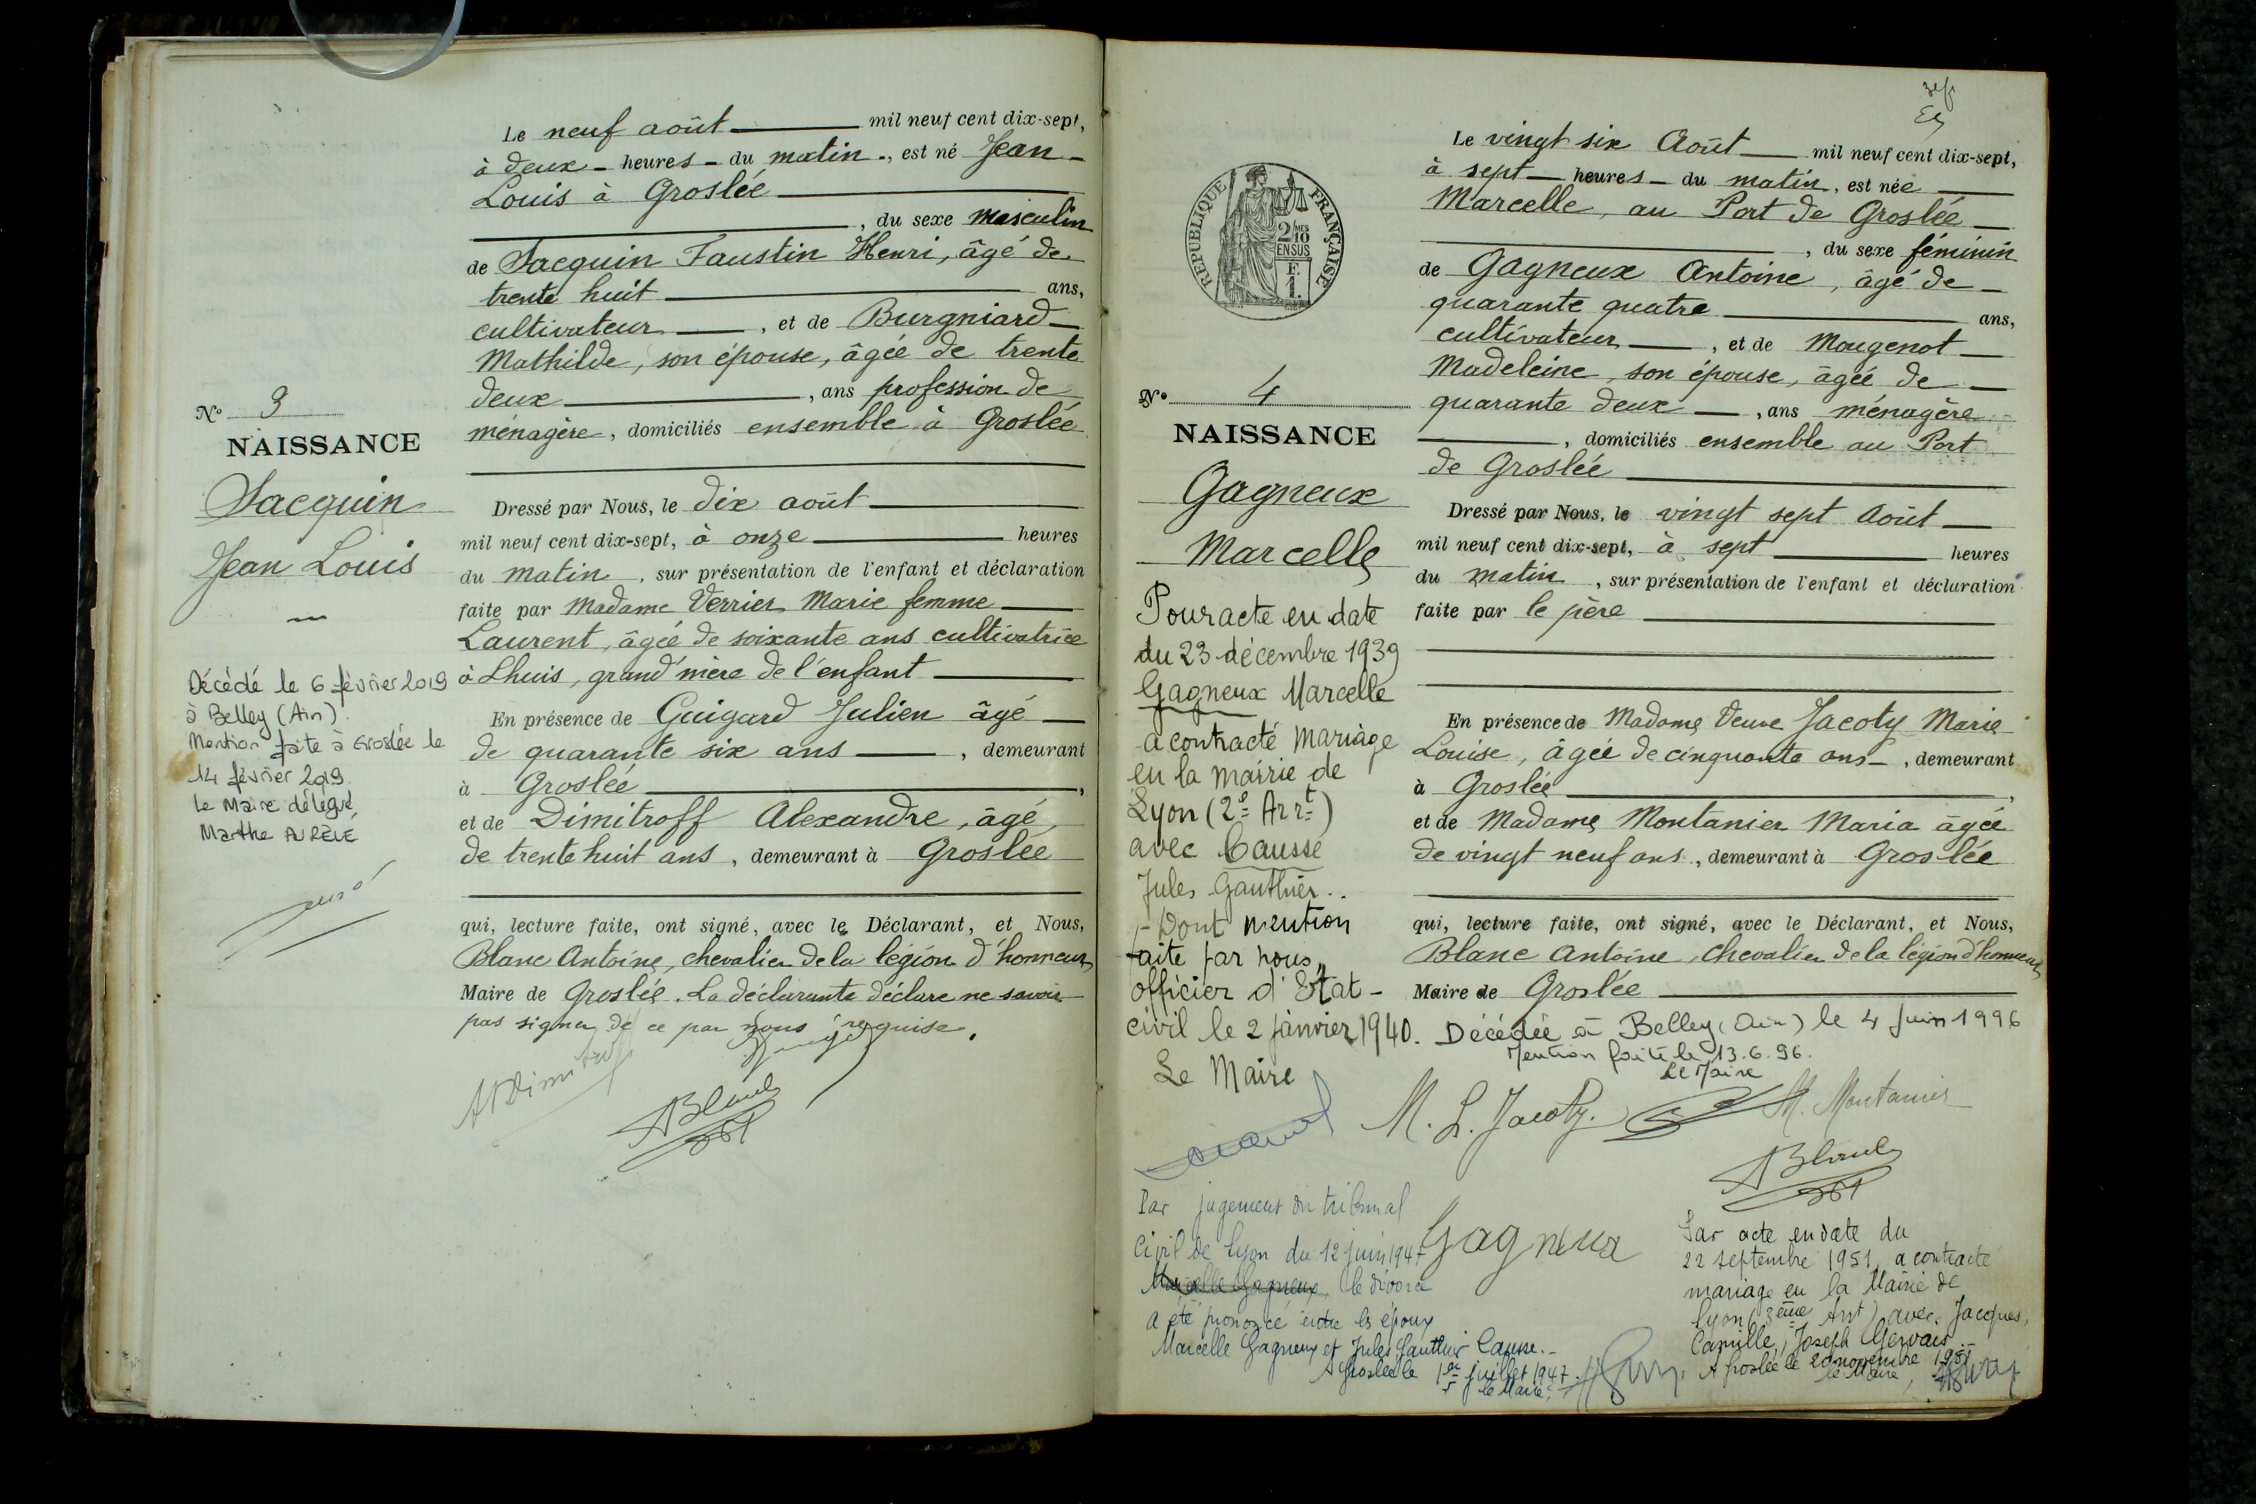 Le neuf août mil neuf cent dix-sept,
à deux heures du matin, est né Jean
Louis à Groslée
, du sexe masculin
de Jacquin Faustin Henri, âgé de
trente huit ans,
cultivateur, et de Burgniard
Mathilde, son épouse, âgée de trente
deux, ans profession de
ménagère, domiciliés ensemble à Groslée
No 3
NAISSANCE
Jacquin
Jean Louis
Décédé le 6 février 2019
à Belley (Ain).
Mention faite à Groslée le
14 février 2019
Le Maire délégué
Marthe AURÈLE
Dressé par Nous, le dix août
mil neuf cent dix-sept, à onze heures
du matin, sur présentation de l'enfant et déclaration
faite par Madame Verrier Marie femme
Laurent, âgée de soixante ans cultivatrice
à Lhuis, grand'mère de l'enfant
En présence de Guigard Julien âgé
de quarante six ans, demeurant
à Groslée,
et de Dimitroff Alexandre, âgé
de trente huit ans, demeurant à Groslée
qui, lecture faite, ont signé, avec le Déclarant, et Nous,
Blanc Antoine, chevalier de la légion d'honneur
Maire de Groslée. La déclarante déclare ne savoir
pas signer de ce par nous requise.
ABlanc
Le vingt six Août mil neuf cent dix-sept,
à sept heures du matin, est née
Marcelle, au Port de Groslée
, du sexe féminin
de Gagneux Antoine, âgé de
quarante quatre ans,
cultivateur, et de Mougenot
Madeleine, son épouse, âgée de
quarante deux, ans ménagère
, domiciliés ensemble au Port
de Groslée
REPUBLIQUE FRANÇAISE
2/10 MES
EN SUS
F.
1.
No 4
NAISSANCE
Gagneux
Marcelle
Pour acte en date
du 23 décembre 1939
Gagneux Marcelle
a contracté mariage
en la mairie de
Lyon (2e Arrt)
avec Causse
Jules Gauthier.
- Dont mention
faite par nous,
officier d'Etat-
civil le 2 janvier 1940.
Le Maire
Dressé par Nous, le vingt sept Août
mil neuf cent dix-sept, à sept heures
du matin, sur présentation de l'enfant et déclaration
faite par le père
En présence de Madame Veuve Jacoty Marie
Louise, âgée de cinquante ans, demeurant
à Groslée,
et de Madame Montanier Maria âgée
de vingt neuf ans, demeurant à Groslée
qui, lecture faite, ont signé, avec le Déclarant, et Nous,
Blanc Antoine, chevalier de la légion d'honneur
Maire de Groslée
Décédée à Belley (Ain) le 4 Juin 1996
Mention faite le 13.6.96.
Le Maire
M. L. Jacoty.
M. Montanier
ABlanc
Gagneux
Par jugement du tribunal
Civil de Lyon du 12 juin 1947
Marcelle Gagneux, le divorce
a été prononcé entre les époux
Marcelle Gagneux et Jules Gauthier Causse.
A Groslée le 1er juillet 1947.
le Maire:
Par acte en date du
22 septembre 1951, a contracté
mariage en la Mairie de
Lyon (3ème Arrt) avec Jacques,
Camille, Joseph Gervais
A Groslée le 20 novembre 1951
le Maire,